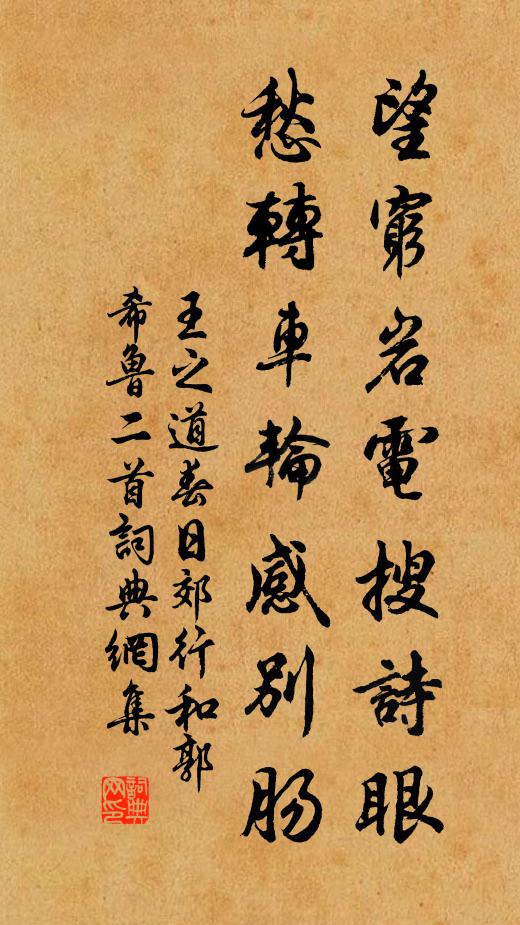 望窮岩電搜詩眼
愁轉車輪感別肠
王之道春日郊行和郭
希魯二首詞典網集
詞典
网印